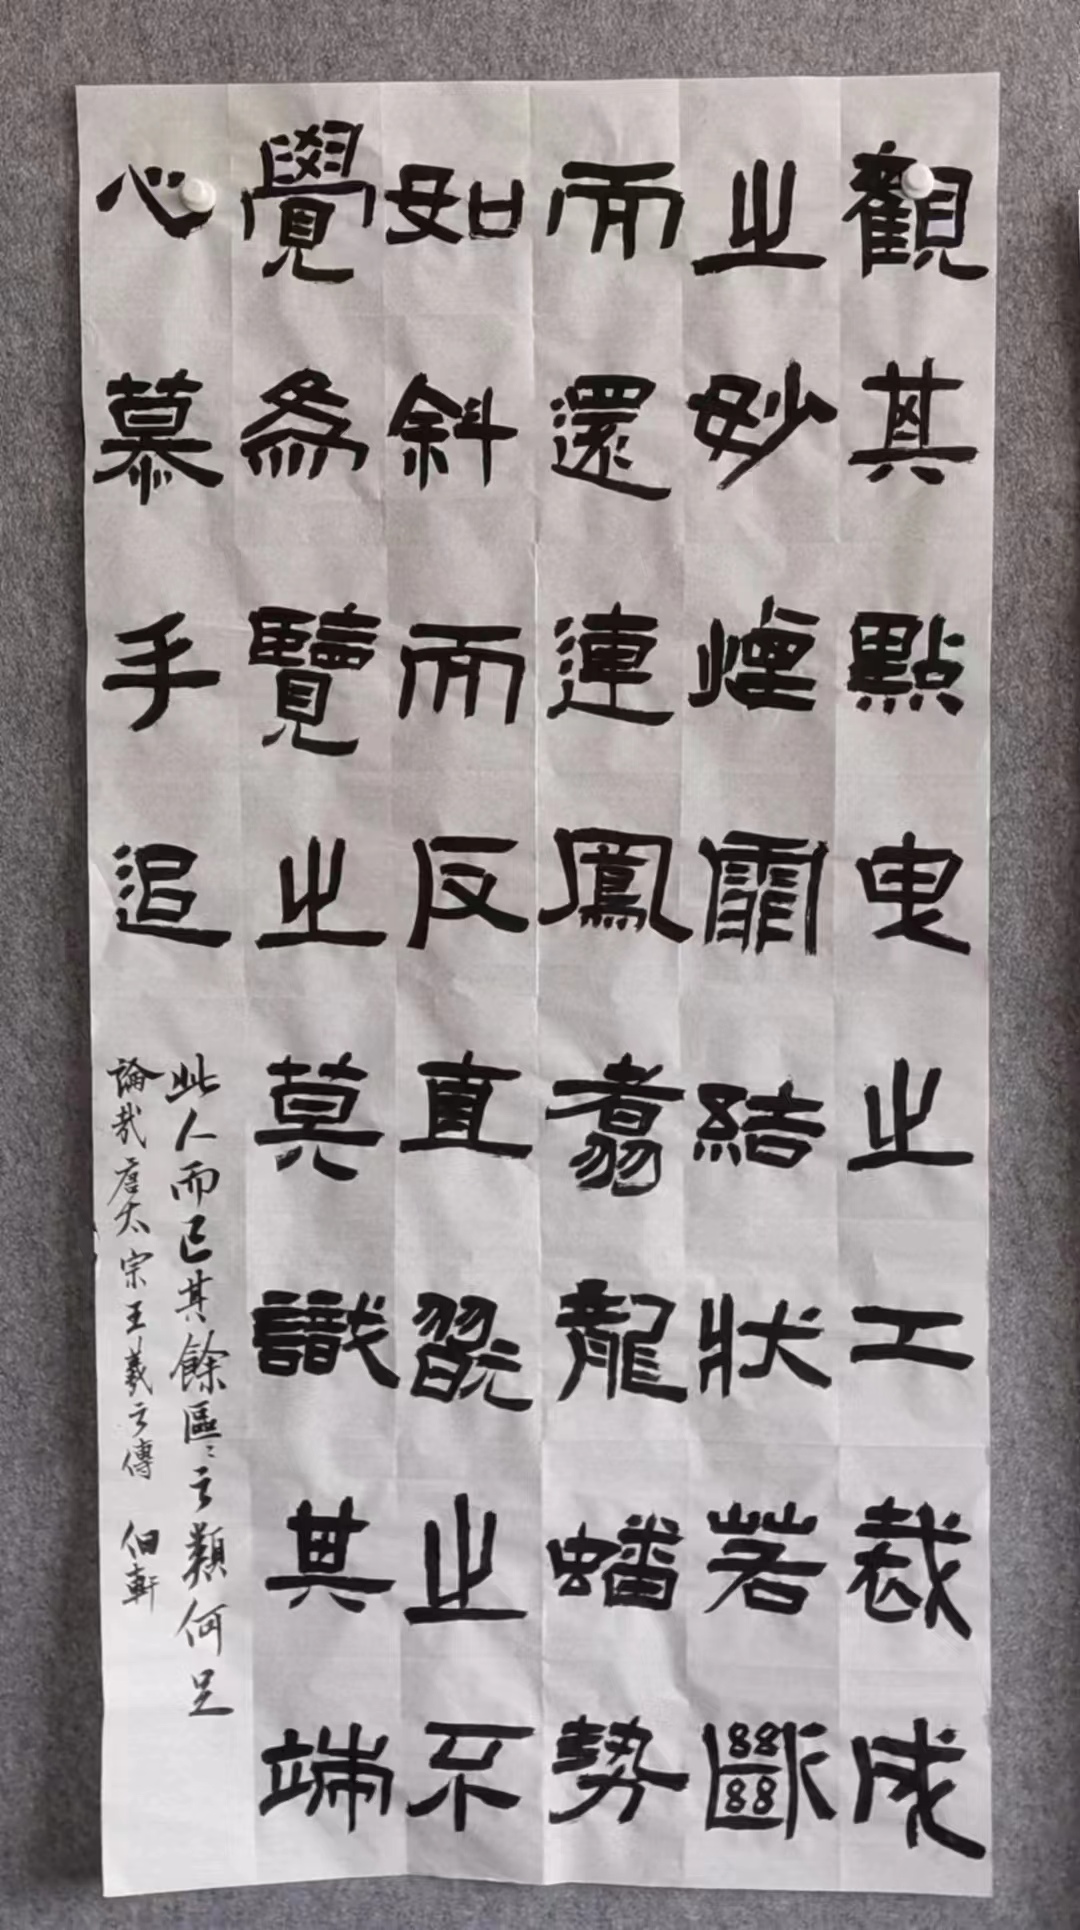 觀其點曳之工裁成
之妙煙霏結狀若斷
而還連鳳翥龍蟠勢
如斜而反直翫之不
覺為覽之莫識其端
心慕手追
此人而已其餘區〻之類何足
論哉唐太宗王羲之傳 軒